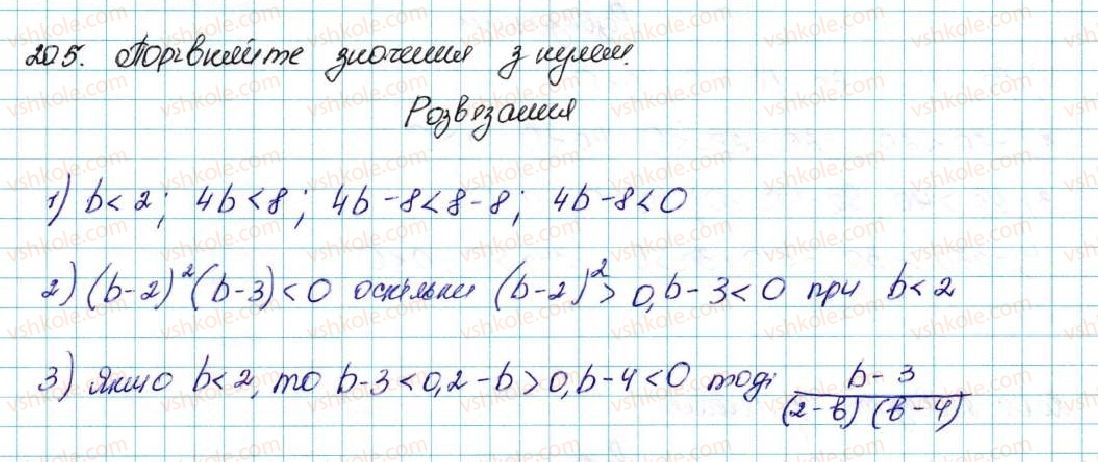 205. Порівняйте значення з нулем.
Розвязання
1) b < 2; 4b < 8; 4b - 8 < 8 - 8; 4b - 8 < 0
2) (b - 2)² (b - 3) < 0 оскільки (b - 2)² > 0, b - 3 < 0 при b < 2
3) Якщо b < 2, то b - 3 < 0, 2 - b > 0, b - 4 < 0 тоді (b - 3)/((2 - b)(b - 4))